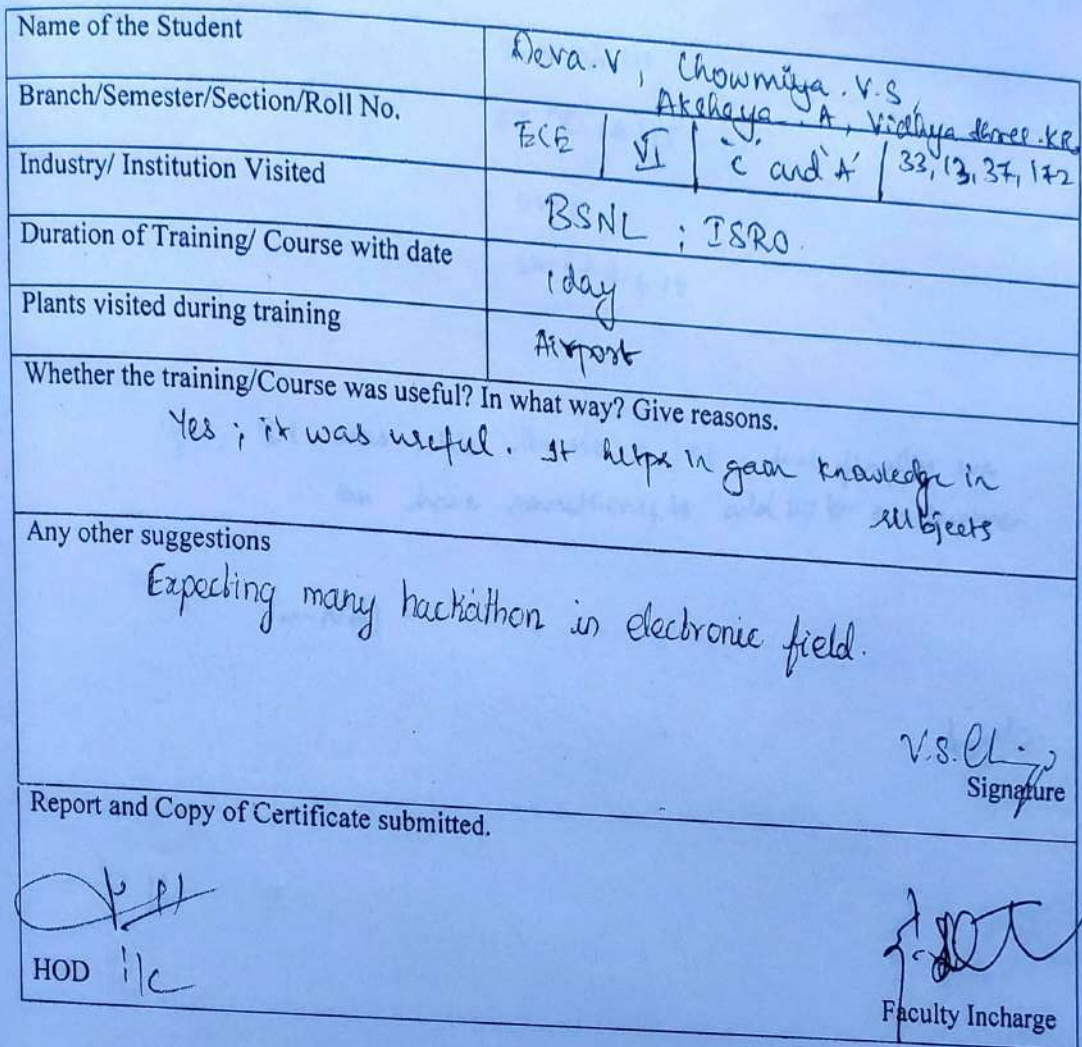 Name of the Student
Deva. V, Chowmiya. V.S,
Akshaya. A, Vidhya shree. KR
Branch/Semester/Section/Roll No.
ECE | VI | 'C' and 'A' | 33, 13, 37, 172
Industry/ Institution Visited
BSNL ; ISRO.
Duration of Training/ Course with date
1 day
Plants visited during training
Airport
Whether the training/Course was useful? In what way? Give reasons.
Yes ; it was useful. It helps in gain knowledge in
subjects
Any other suggestions
Expecting many hackathon in electronic field.
V.S.
Signature
Report and Copy of Certificate submitted.
HOD i/c
Faculty Incharge